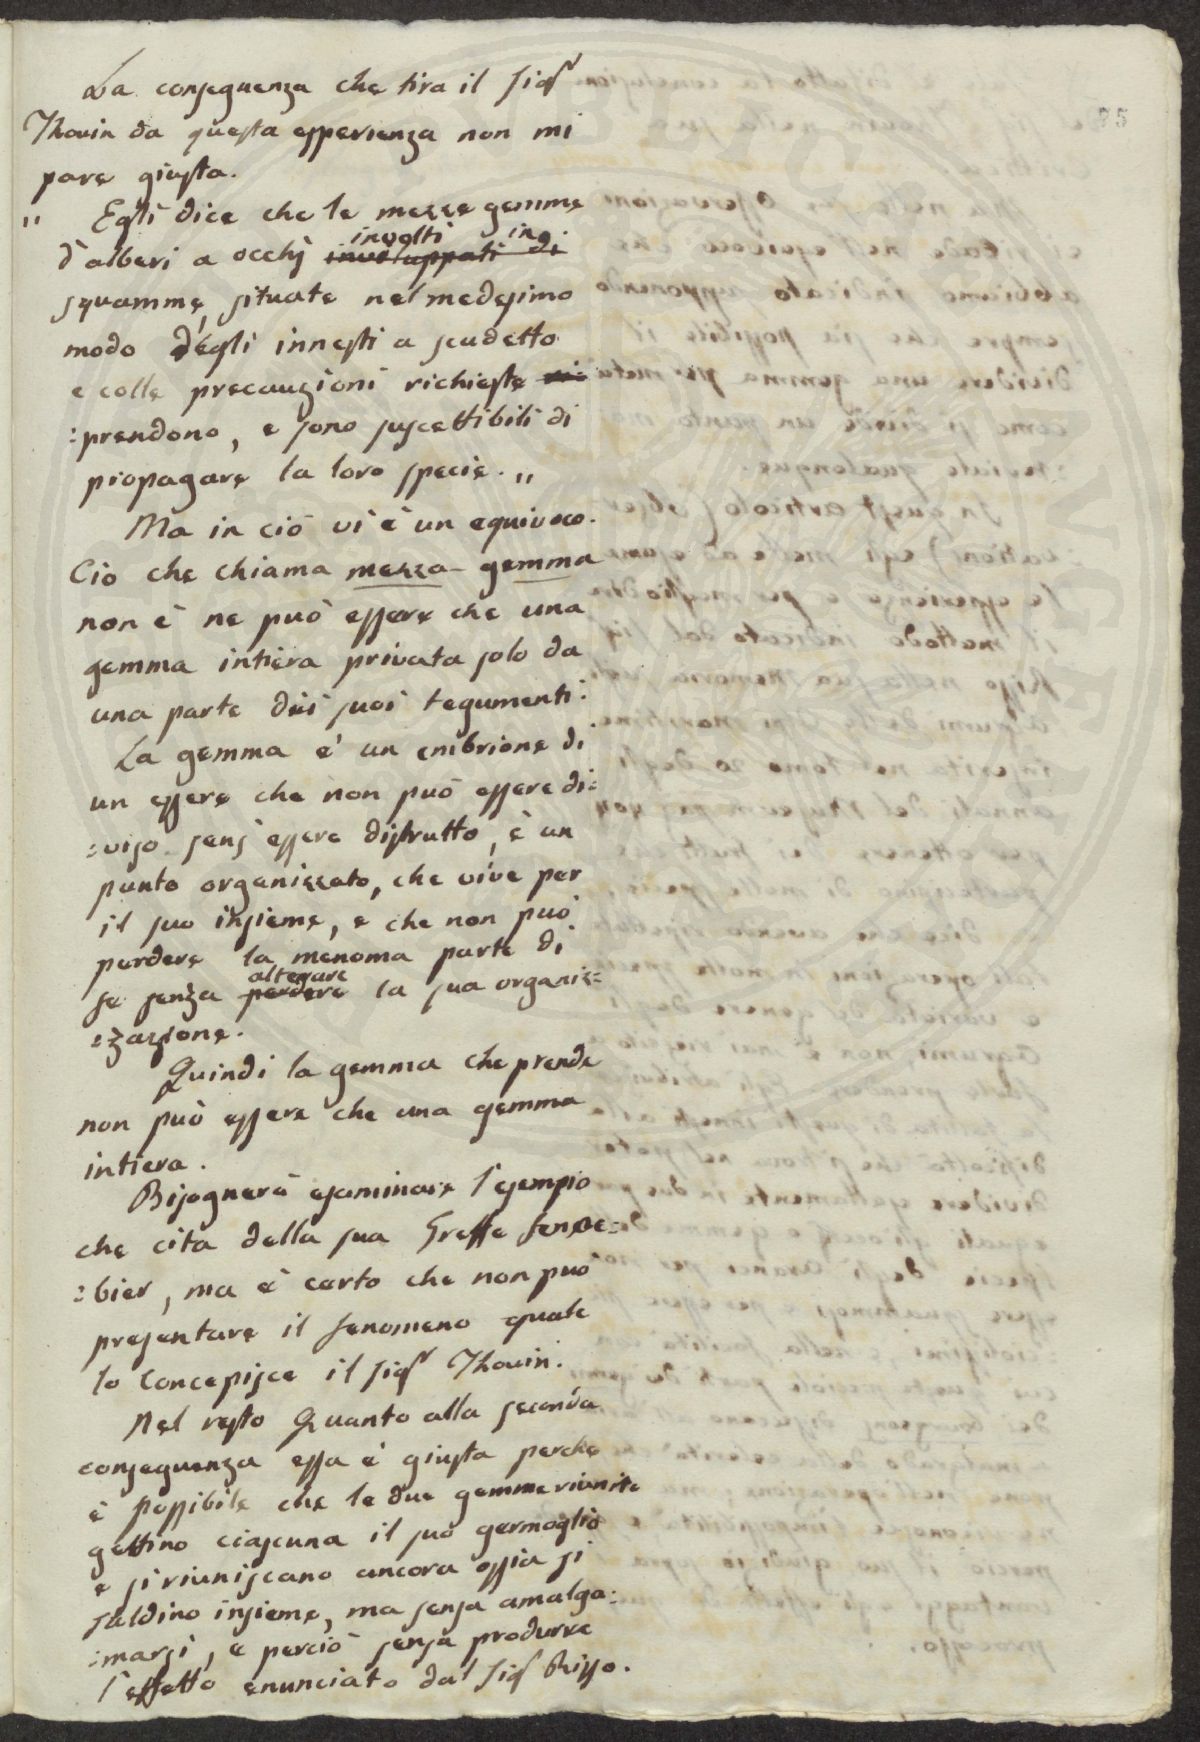 95
La conseguenza che tira il Sigr
Thouin da questa esperienza non mi
pare giusta.
" Egli dice che le mezze gemme
d'alberi a occhj inviluppati di
involti in
squamme, situate nel medesimo
modo degli innesti a scudetto
e colle precauzioni richieste
:prendono, e sono suscettibili di
propagare la loro specie. "
Ma in ciò vi è un equivoco.
Ciò che chiama mezza gemma
non è ne può essere che una
gemma intiera privata solo da
una parte dei suoi tegumenti.
La gemma è un embrione di
un essere che non può essere di=
:viso senz'essere distrutto, è un
punto organizzato, che vive per
il suo insieme, e che non può
perdere la menoma parte di
se senza perdere la sua organiz=
alterare
:zazione.
Quindi la gemma che prende
non può essere che una gemma
intiera.
Bisognerà esaminare l'esempio
che cita della sua Greffe Senne=
:bier, ma è certo che non può
presentare il fenomeno quale
lo Concepisce il Sigr Thouin.
Nel resto Quanto alla seconda
conseguenza essa è giusta perche
è possibile che le due gemme riunite
gettino ciascuna il suo germoglio
e si riuniscano ancora ossia si
saldino insieme, ma senza amalga:
:marsi, e perciò senza produrre
l'effetto enunciato dal Sigr Risso.